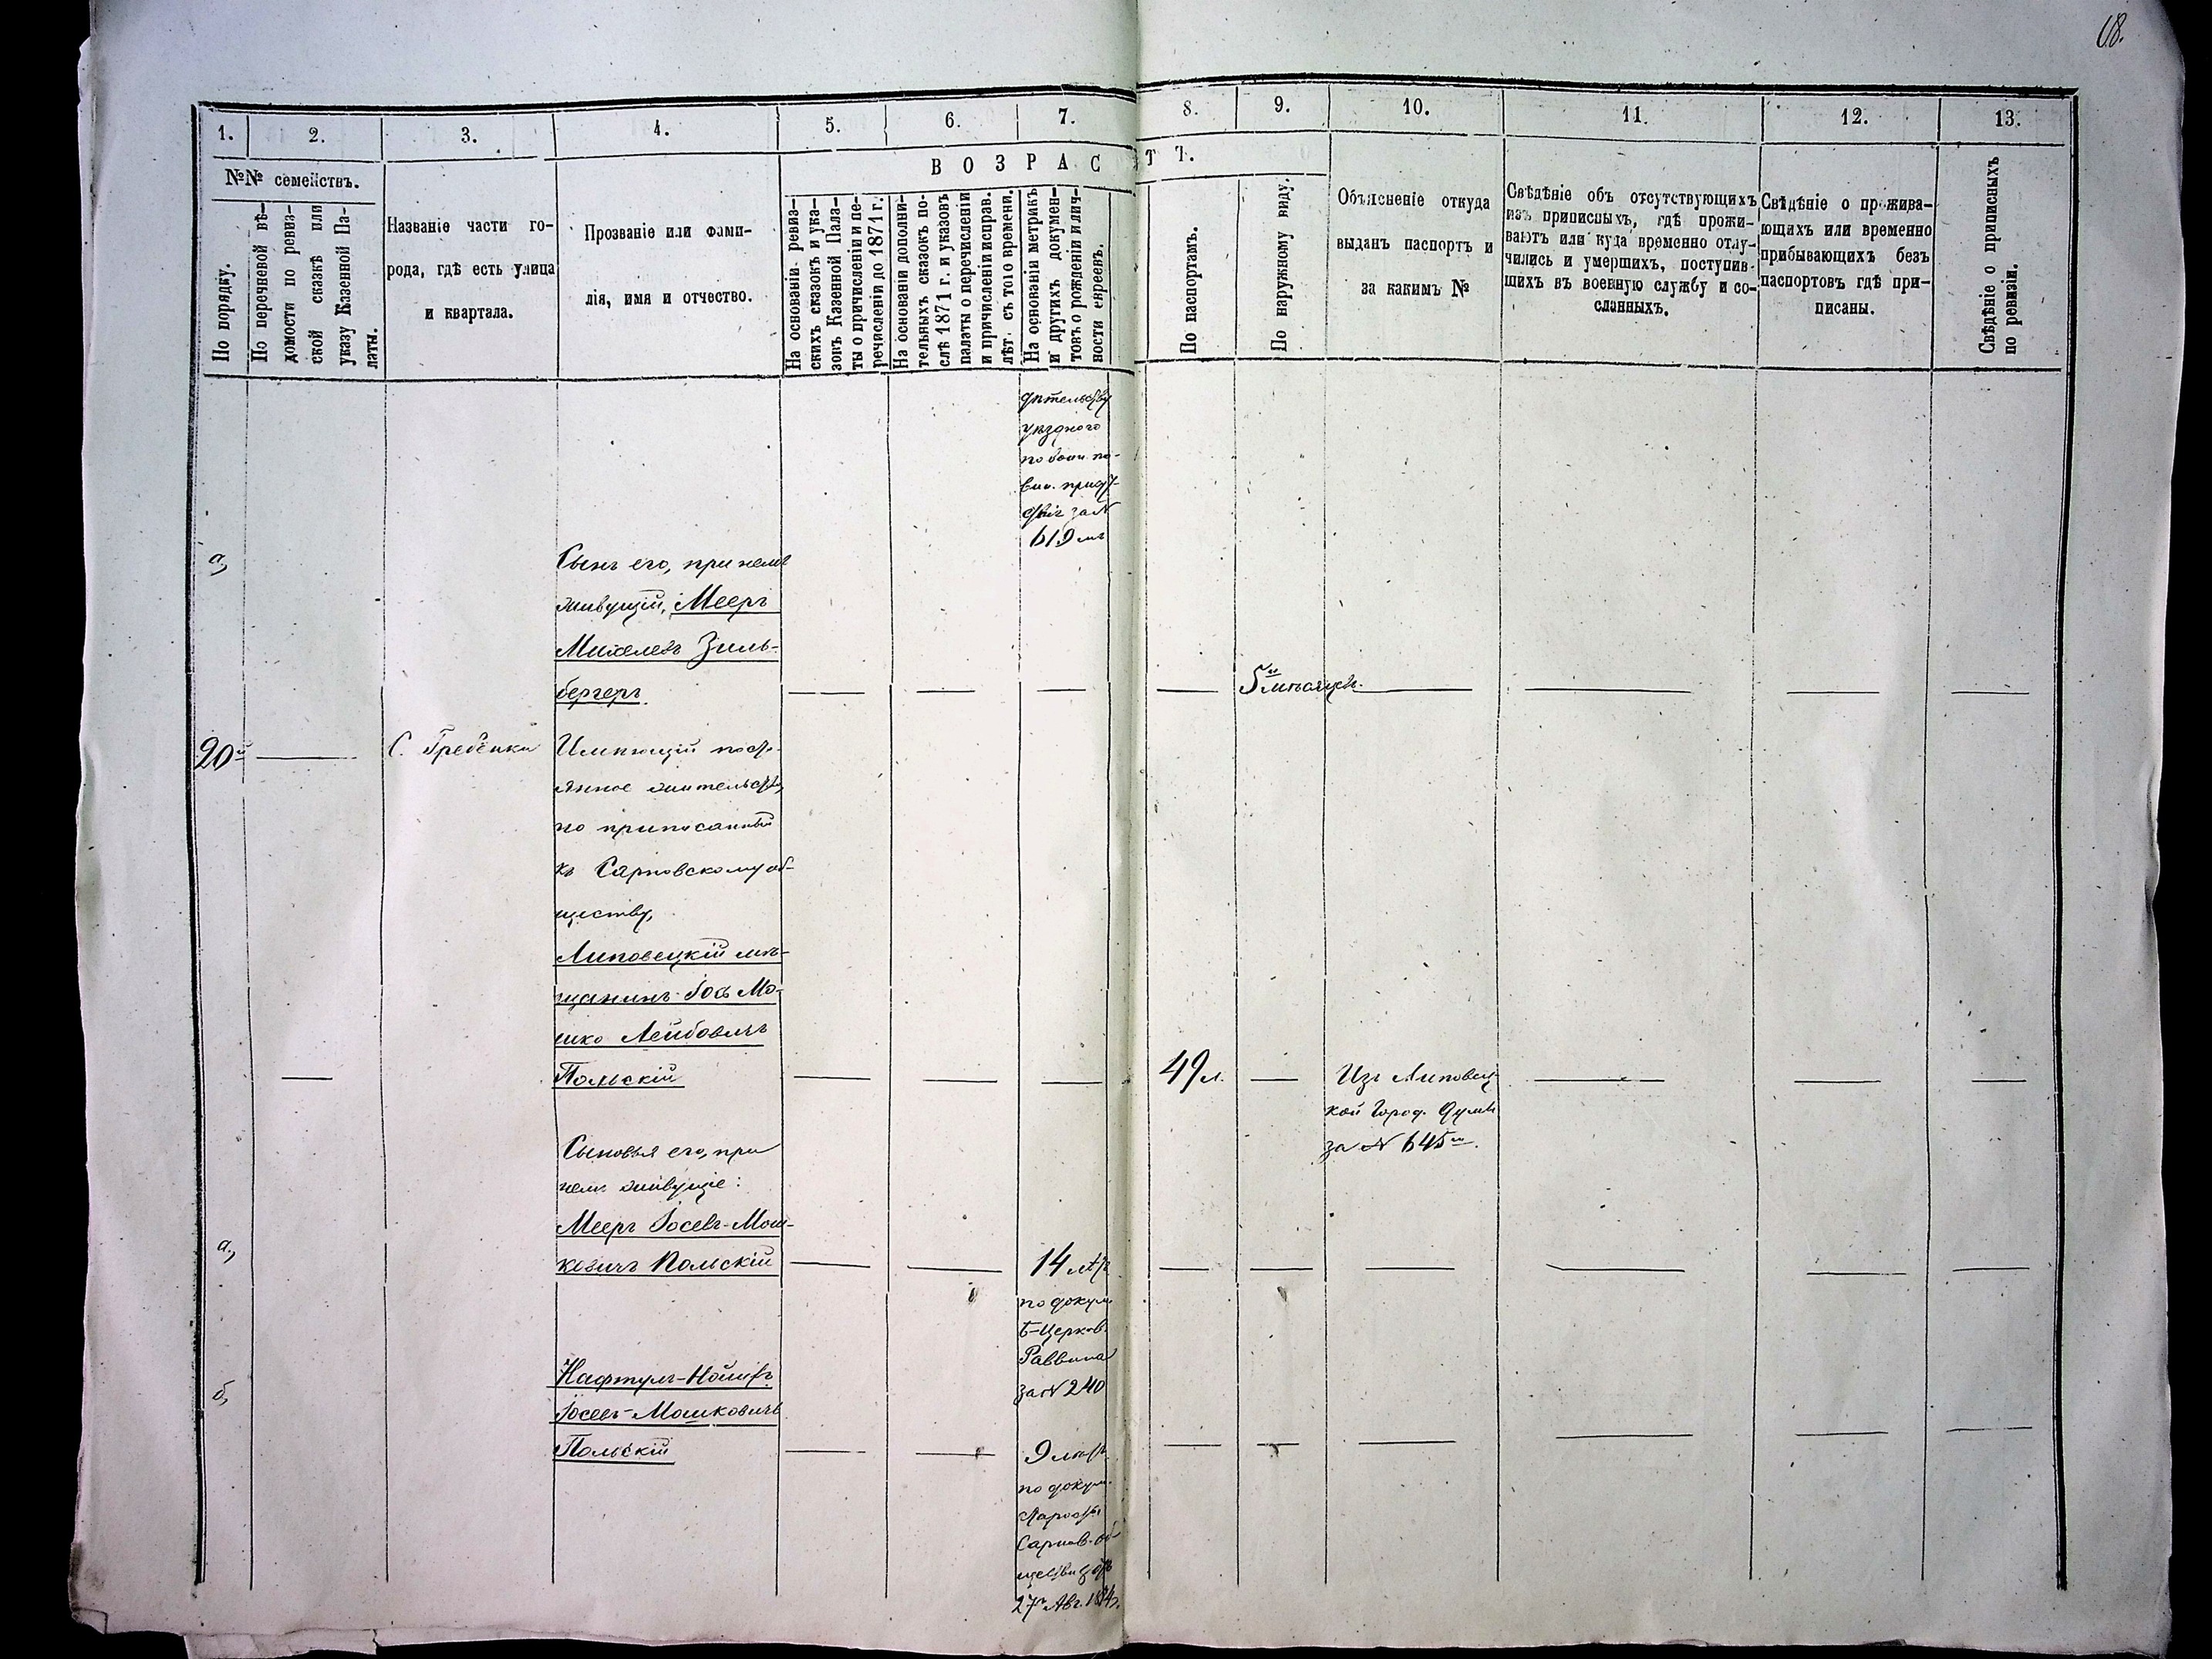 68.
1.
2.
3.
4.
5.
6.
7.
8.
9.
10.
11.
12.
13.
№№ семействъ.
ВОЗРАСТЪ.
По порядку.
По перечневой вѣ-
домости по ревиз-
ской сказкѣ или
указу Казенной Па-
латы.
Названіе части го-
рода, гдѣ есть улица
и квартала.
Прозваніе или фами-
лія, имя и отчество.
На основаніи ревиз-
скихъ сказокъ и ука-
зовъ Казенной Пала-
ты о причисленіи и пе-
речисленіи до 1871 г.
На основаніи дополни-
тельныхъ сказокъ по-
слѣ 1871 г. и указовъ
палаты о перечисленіи
и причисленіи исправ.
лѣт. съ того времени.
На основаніи метрикъ
и другихъ докумен-
товъ о рожденіи и лич-
ности евреевъ.
По паспортамъ.
По наружному виду.
Объясненіе откуда
выданъ паспортъ и
за какимъ №
Свѣдѣніе объ отсутствующихъ
изъ приписныхъ, гдѣ прожи-
ваютъ или куда временно отлу-
чились и умершихъ, поступив-
шихъ въ военную службу и со-
сланныхъ.
Свѣдѣніе о прожива-
ющихъ или временно
прибывающихъ безъ
паспортовъ гдѣ при-
писаны.
Свѣдѣніе о приписныхъ
по ревизіи.
дѣтельству
уѣзднаго
по воин. по-
вин. присут-
ствія за №
619мъ
а,
Сынъ его, при немъ
живущій, Мееръ
Михелевъ Зиль-
бергеръ.
5и мѣсяцевъ.
20й
С. Гребенки
Имѣющій посто-
янное жительство,
но приписанный
къ Сарновскому об-
ществу,
Липовецкій мѣ-
щанинъ Іосъ Мо-
шко Лейбовичъ
Польскій
49 л.
Изъ Липовец-
кой Город. Думы
за № 645м.
Сыновья его, при
немъ живущіе:
а,
Мееръ Іосевъ-Мош-
ковичъ Польскій
14 лѣтъ
по докум.
Б-Церков.
Раввина
за № 240
б,
Нафтулъ-
Іосевъ-Мошковичъ
Польскій
9 лѣтъ
по докум.
Старосты
Сарнов. об-
щества отъ
27го Авг. 1874г.